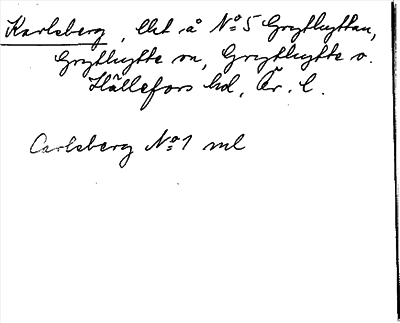 Karlsberg, lht å No 5 Grythyttan,
Grythytte sn, Grythytte o.
Hällefors hd, Ör. l.
Carlsberg No 1 ml